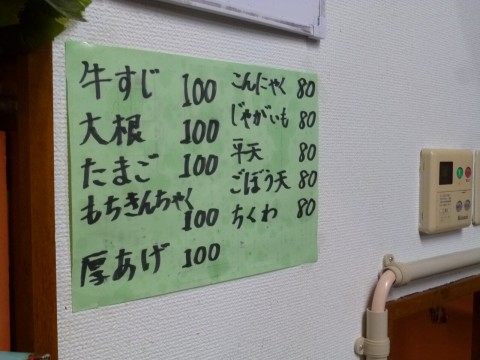 牛すじ 100
大根 100
たまご 100
もちきんちゃく 100
厚あげ 100
こんにゃく 80
じゃがいも 80
平天 80
ごぼう天 80
ちくわ 80